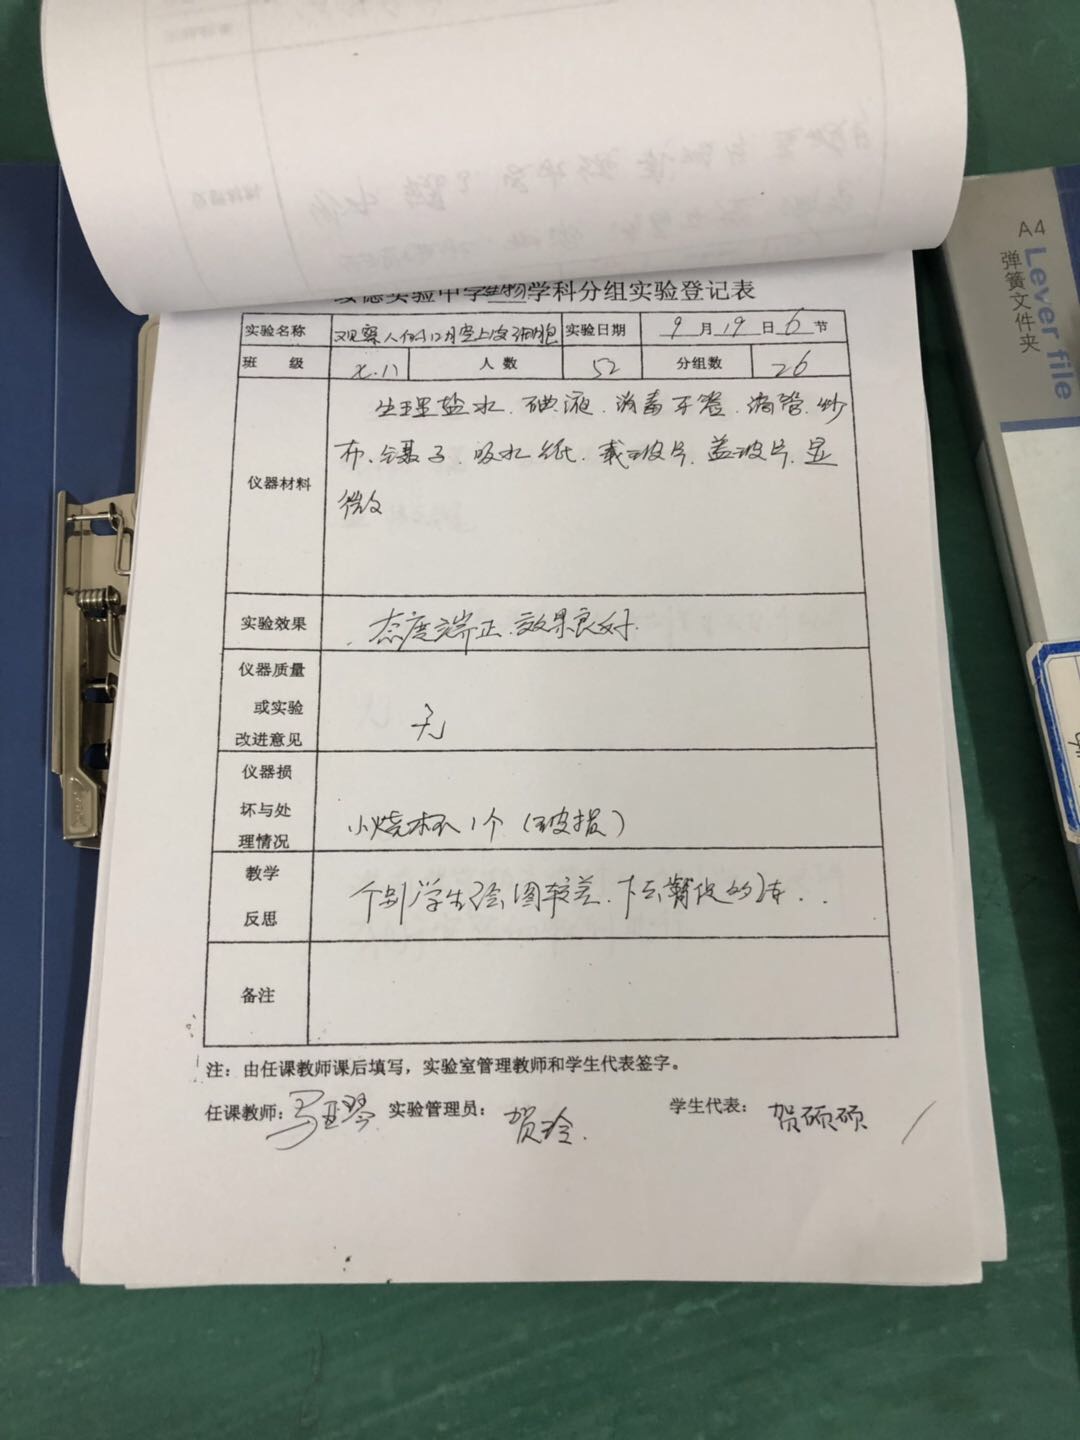 德实验中学生物学科分组实验登记表
实验名称 观察人的口腔上皮细胞 实验日期 9月19日6节
班 级 七.11 人数 52 分组数 26
仪器材料
生理盐水.碘液.消毒牙签.滴管.纱
布.镊子.吸水纸.载玻片.盖玻片.显
微
实验效果 态度端正.效果良好.
仪器质量
或实验
改进意见
无
仪器损
坏与处
理情况
小烧杯1个(破损)
教学
反思
个别学生绘图较差.
备注
注：由任课教师课后填写，实验室管理教师和学生代表签字。
任课教师: 马亚琴 实验管理员: 贺玲. 学生代表: 贺硕硕
A4
Lever file
弹簧文件夹